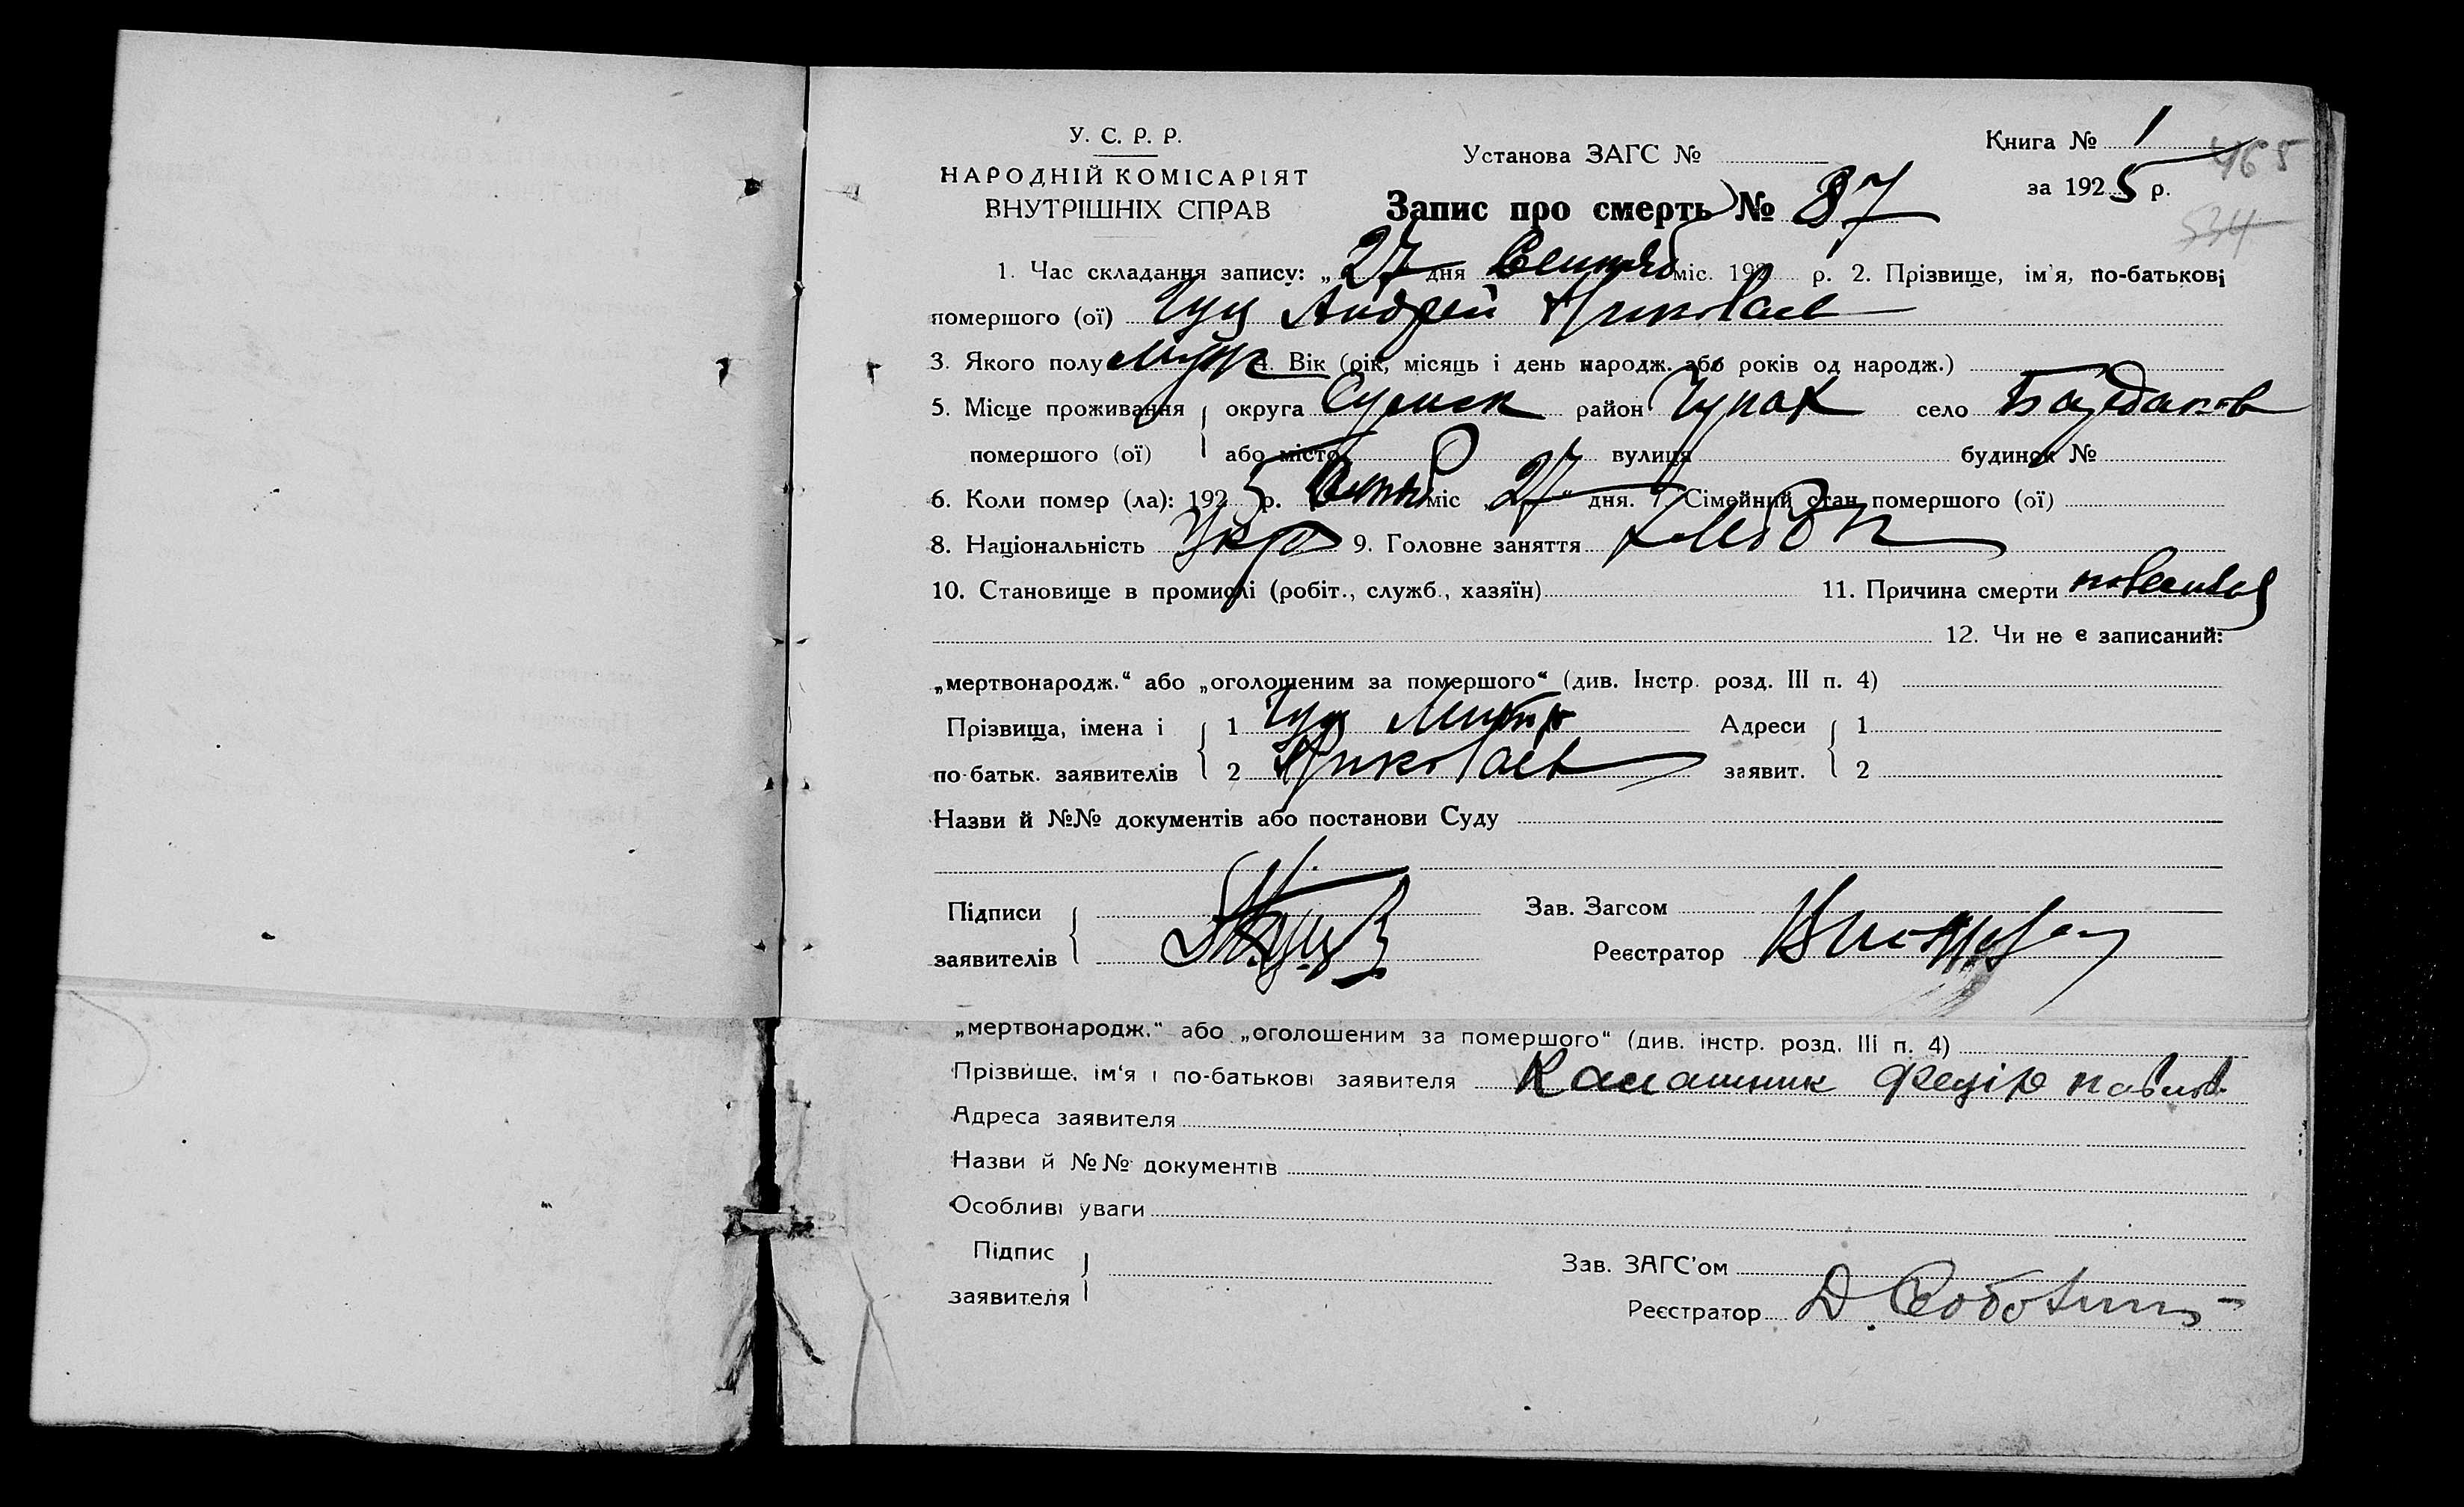 У. С. Р. Р.
НАРОДНІЙ КОМІСАРІЯТ
ВНУТРІШНІХ СПРАВ
Установа ЗАГС №
Запис про смерть № 87
Книга № 1
465
за 1925 р.
534
1. Час складання запису: „27 дня міс. 192 р. 2. Прізвище, ім'я, по-батькові
помершого (ої) Гуц Андрей Николаев
3. Якого полу муж 4. Вік (рік, місяць і день народж. або років од народж.)
5. Місце проживання округа Сумск район Чупах село
помершого (ої) або місто вулиця будинок №
6. Коли помер (ла): 1925 р. міс „27“ дня. 7. Сімейний стан помершого (ої)
8. Національність Укр 9. Головне заняття хлебоп
10. Становище в промислі (робіт., служб., хазяїн) 11. Причина смерти
12. Чи не є записаний:
„мертвонародж.“ або „оголошеним за помершого“ (див. Інстр. розд. III п. 4)
Прізвища, імена і 1 Гуц Митр Адреси 1
по-батьк. заявителів 2 Николаев заявит. 2
Назви й №№ документів або постанови Суду
Підписи Зав. Загсом
заявителів Реєстратор
„мертвонародж.“ або „оголошеним за помершого“ (див. інстр. розд. III п. 4)
Прізвище, ім'я і по-батькові заявителя Калашник Федір Павлов
Адреса заявителя
Назви й №№ документів
Особливі уваги
Підпис Зав. ЗАГС'ом
заявителя Реєстратор Д.